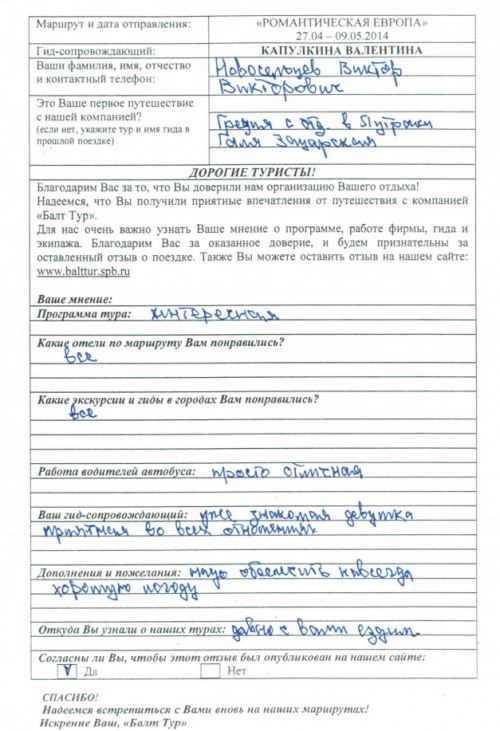 Маршрут и дата отправления: «РОМАНТИЧЕСКАЯ ЕВРОПА»
27.04 – 09.05.2014
Гид-сопровождающий: КАПУЛКИНА ВАЛЕНТИНА
Ваши фамилия, имя, отчество Новосельцев Виктор
и контактный телефон: Викторович
Это Ваше первое путешествие
с нашей компанией? Греция с отд. в
(если нет, укажите тур и имя гида в Галя
прошлой поездке)
ДОРОГИЕ ТУРИСТЫ!
Благодарим Вас за то, что Вы доверили нам организацию Вашего отдыха!
Надеемся, что Вы получили приятные впечатления от путешествия с компанией
«Балт Тур».
Для нас очень важно узнать Ваше мнение о программе, работе фирмы, гида и
экипажа. Благодарим Вас за оказанное доверие, и будем признательны за
оставленный отзыв о поездке. Также Вы можете оставить отзыв на нашем сайте:
www.balttur.spb.ru
Ваше мнение:
Программа тура: интересная
Какие отели по маршруту Вам понравились?
все
Какие экскурсии и гиды в городах Вам понравились?
все
Работа водителей автобуса: просто отличная
Ваш гид-сопровождающий: уже знакомая девушка
приятная во всех отношениях
Дополнения и пожелания: надо обеспечить навсегда
хорошую погоду
Откуда Вы узнали о наших турах: давно с вами ездим.
Согласны ли Вы, чтобы этот отзыв был опубликован на нашем сайте:
V Да Нет
СПАСИБО!
Надеемся встретиться с Вами вновь на наших маршрутах!
Искренне Ваш, «Балт Тур»